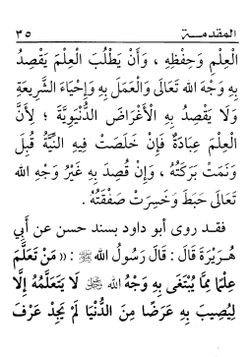 المقدمــة ٣٥
الْعِلْمِ وَحِفْظِهِ ، وَأَنْ يَطْلُبَ الْعِلْمَ يَقْصِدُ
بِهِ وَجْهَ اللهِ تَعَالَى وَالْعَمَلَ بِهِ وَإِحْيَاءَ الشَّرِيعَةِ
وَلَا يَقْصِدُ بِهِ الْأَغْرَاضَ الدُّنْيَوِيَّةَ ؛ لِأَنَّ
الْعِلْمَ عِبَادَةٌ فَإِنْ خَلَصَتْ فِيهِ النِّيَّةُ قُبِلَ
وَنَمَتْ بَرَكَتُهُ ، وَإِنْ قُصِدَ بِهِ غَيْرُ وَجْهِ اللهِ
تَعَالَى حَبَطَ وَخَسِرَتْ صَفْقَتُهُ .
فقـد روى أبو داود بسند حسن عن أَبِي
هُـرَيْرَةَ قَالَ : قَالَ رَسُولُ اللهِ ﷺ : «مَنْ تَعَلَّمَ
عِلْمًا مِمَّا يُبْتَغَى بِهِ وَجْهُ اللهِ ﷻ لَا يَتَعَلَّمُهُ إِلَّا
لِيُصِيبَ بِهِ عَرَضًا مِنَ الدُّنْيَا لَمْ يَجِدْ عَرْفَ